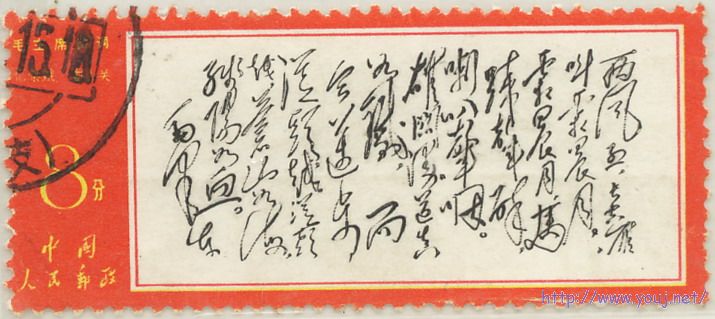 毛主席诗词
关
8分
中国
人民邮政
西风烈,长空雁
叫霜晨月。
霜晨月,马
蹄声碎,
喇叭声咽。
雄关漫道真
如铁,而
今迈步
从头越。从头
越,苍山如海,
残阳如血。
毛泽东
http://www.youj.net/